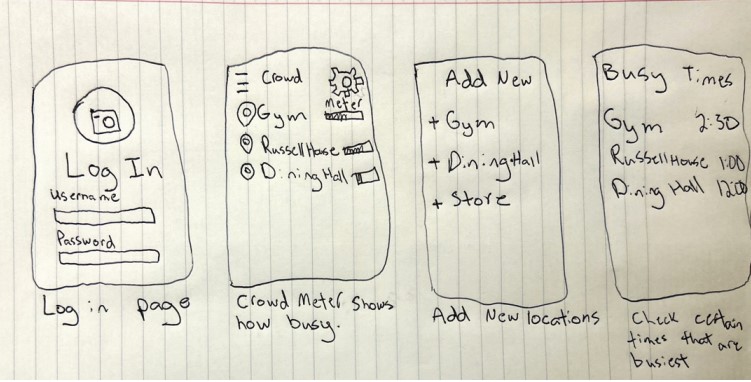 Log In
Username
Password
Log in page
Crowd
Meter
Gym
Russell House
Dining Hall
Crowd Meter Shows
how busy.
Add New
+ Gym
+ Dining Hall
+ Store
Add New locations
Busy Times
Gym 2:30
Russell House 1:00
Dining Hall 12:00
Check certain
times that are
busiest